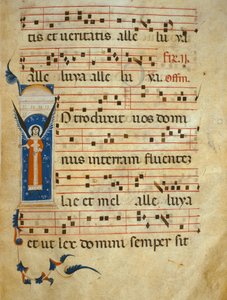 tis et veritatis alle lu ya
alle luya alle lu ya. Offm.
Introduxit vos domi
nus in terram fluentez
lac et mel alle luya
et ut lex domini semper sit